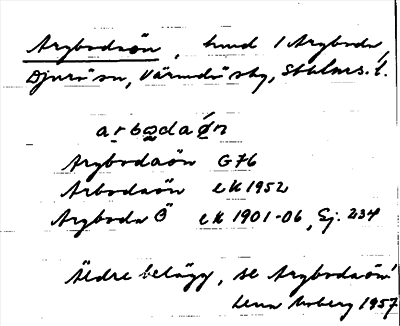 Argbodaön, hund / Argboda,
Djurö sn, Värmdö skg, Sthlms. l.
arbodaön
Argbodaön G76
Arbodaön eK 1952
Argboda Ö eK 1901-06, Ej. 234
Äldre belägg, se Argbodaön!
Moberg 1957